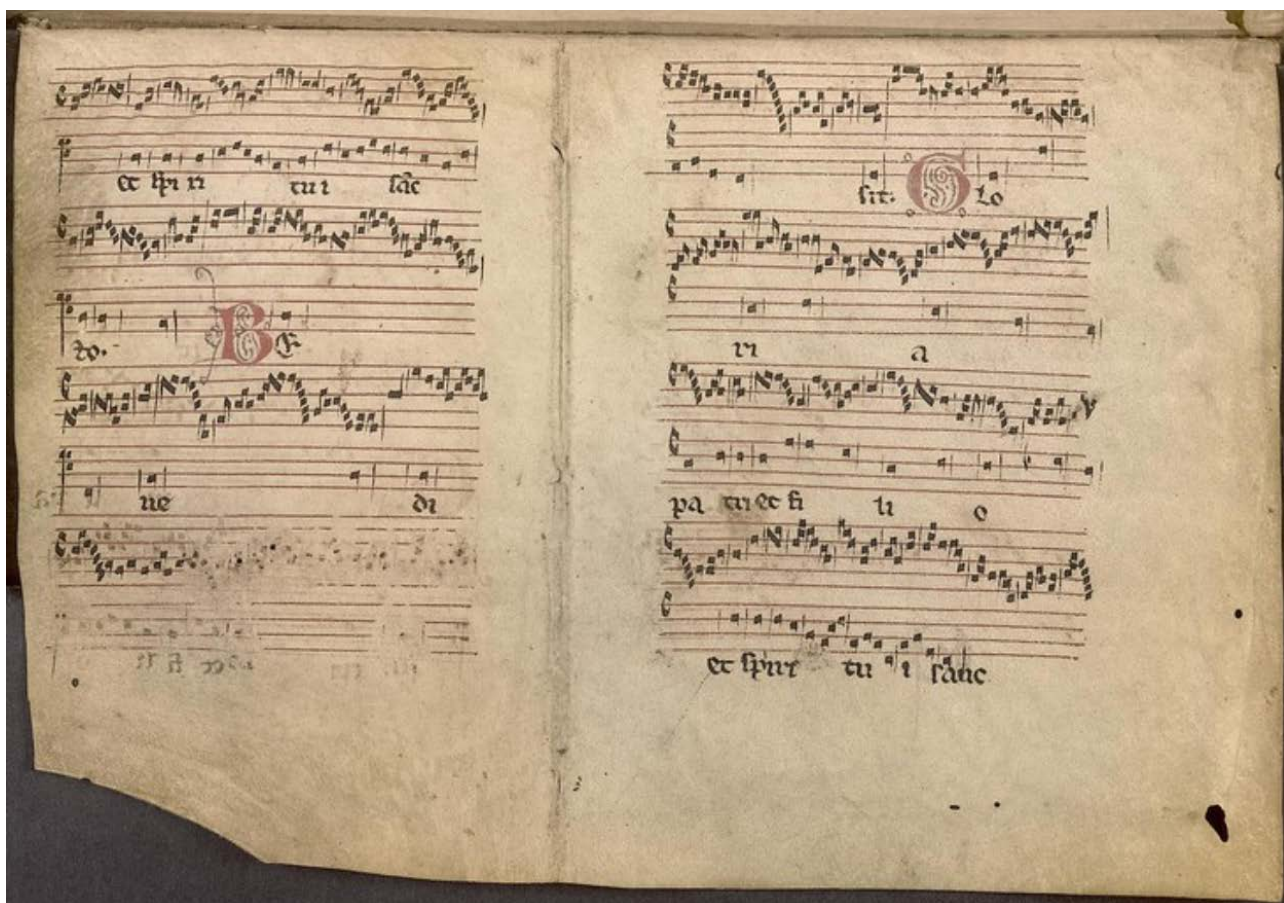 et spi ri tu i sāc
to. BE
ne di
sit. Glo
ri a
pa tri et fi li o
et spirit tu i sanc